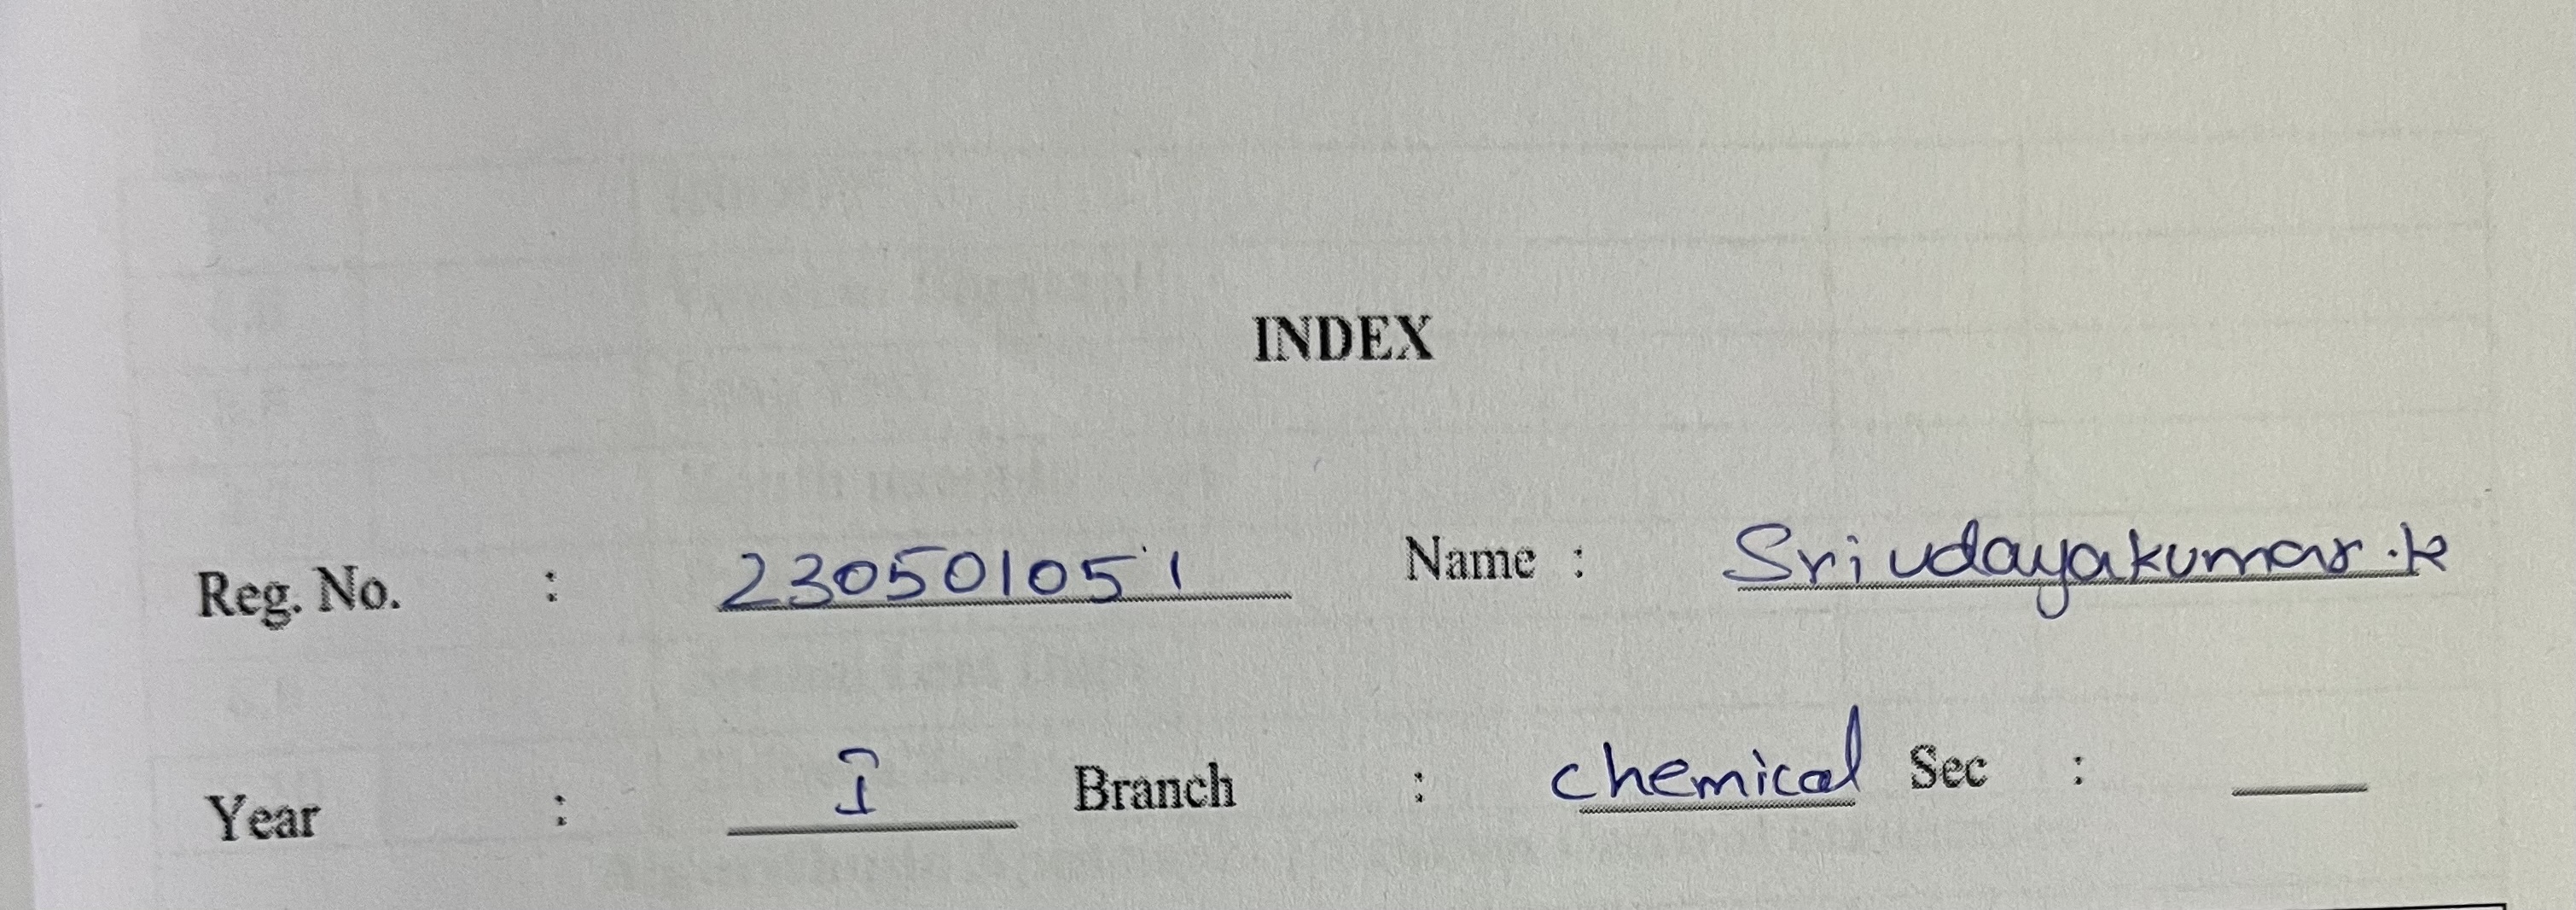 INDEX
Reg. No. : 230501051 Name : Sri udayakumar .k
Year : I Branch : chemical Sec :